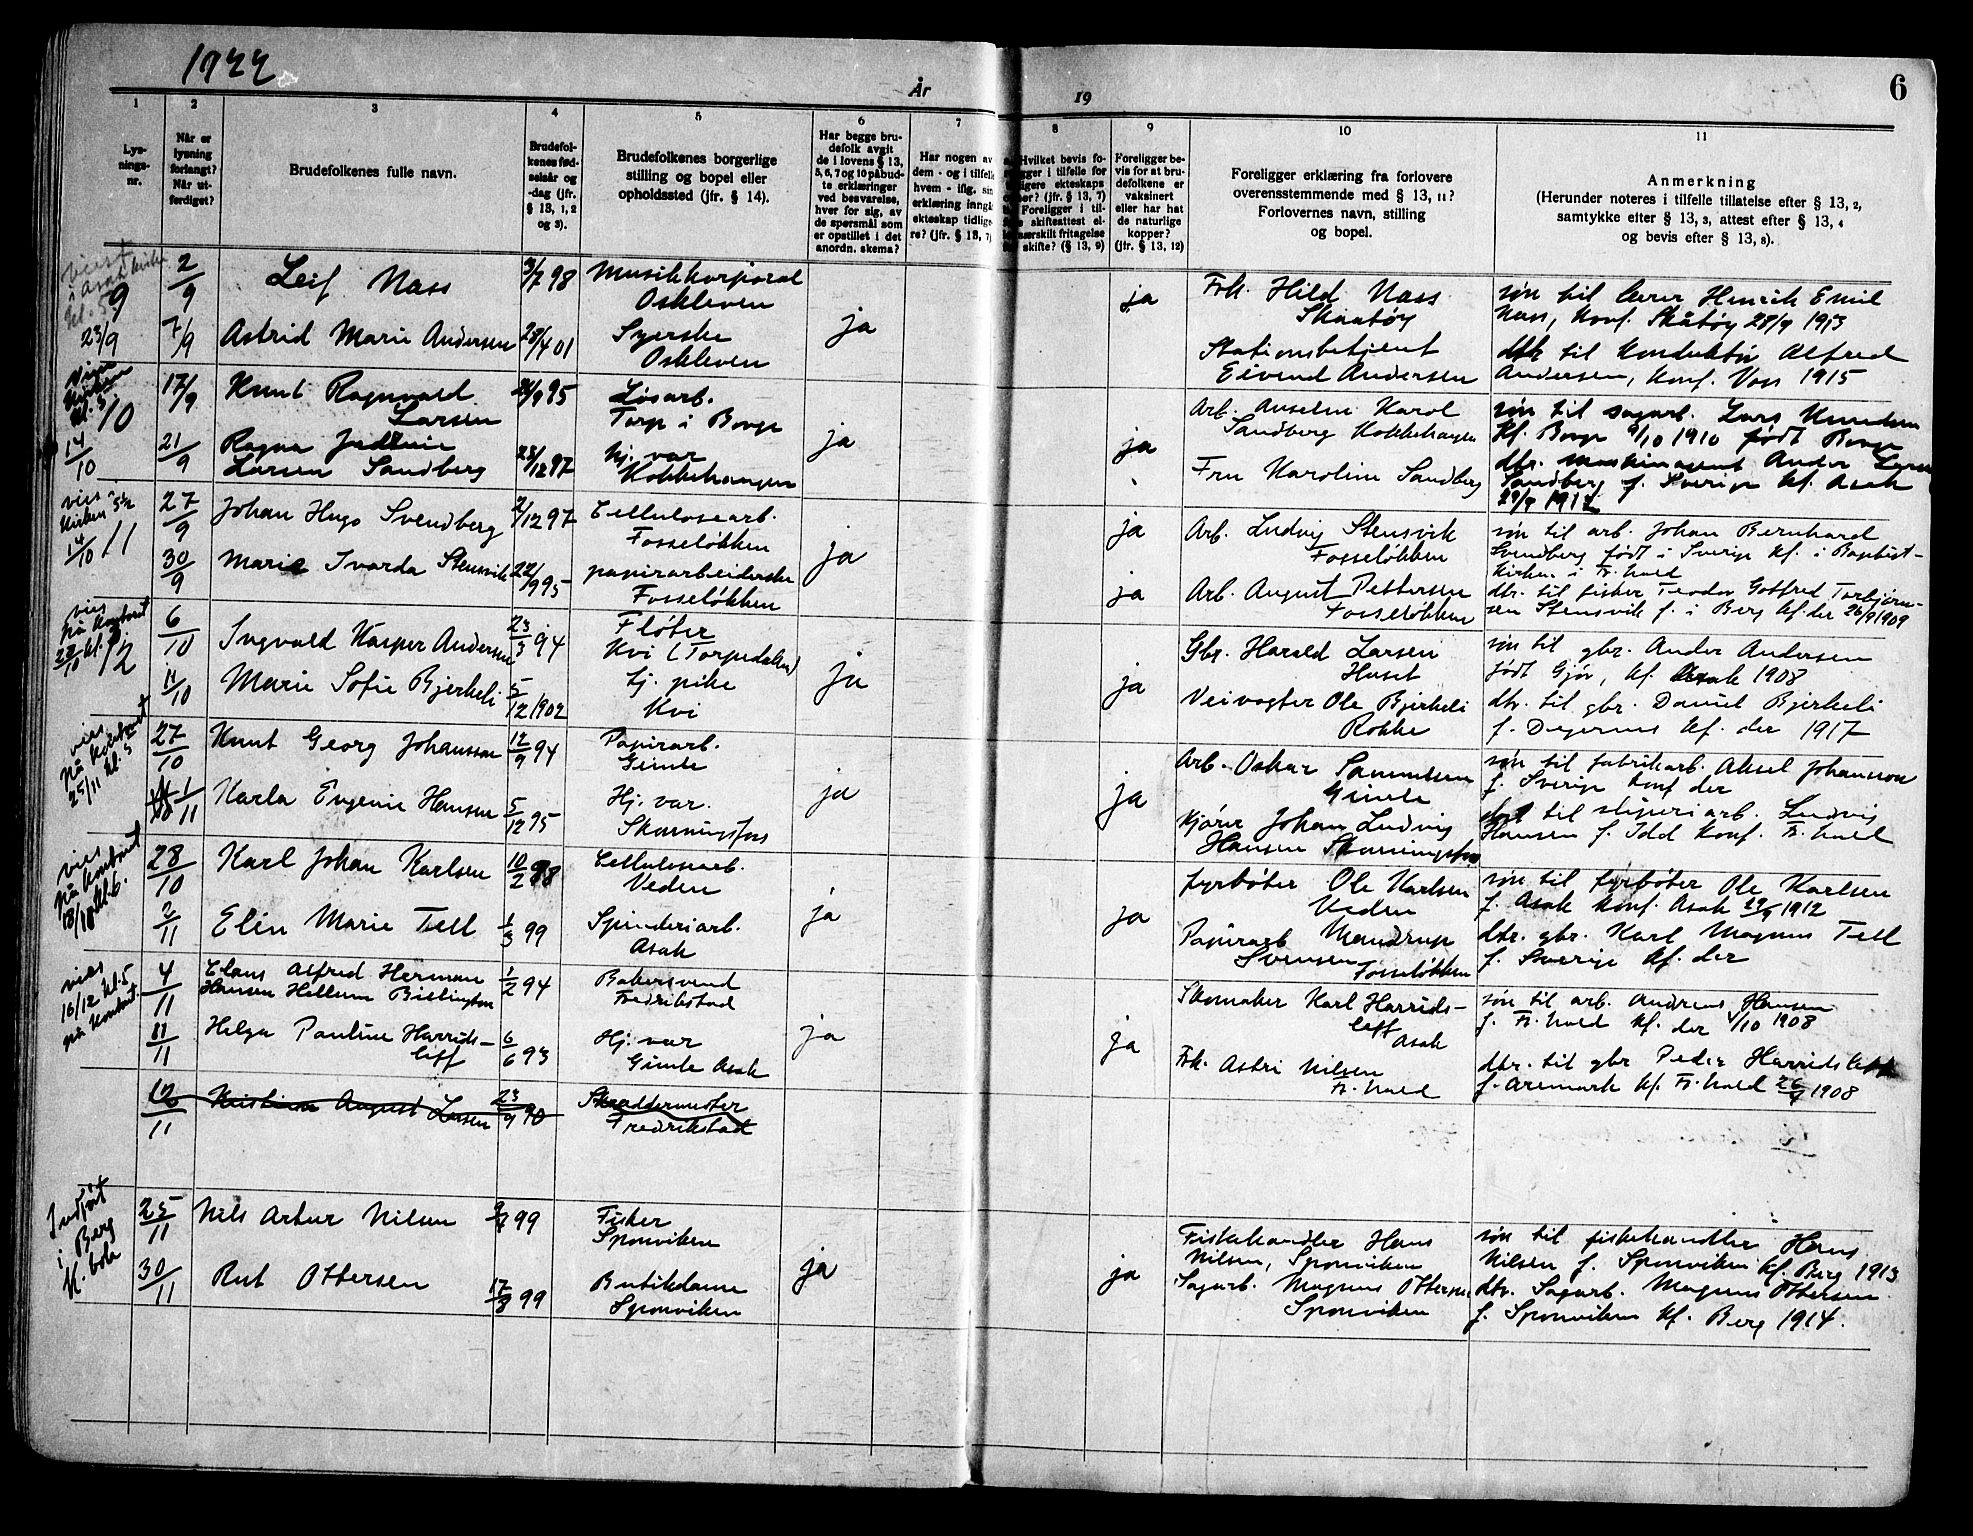 1922
6
År
19
1
2
3
4
5
6
7
8
9
10
11
Lys-
nings-
nr.
Når er
lysning
forlangt?
Når ut-
ferdiget?
Brudefolkenes fulle navn.
Brudefol-
kenes fød-
selsår og
-dag (jfr.
§ 13, 1, 2
og 3).
Brudefolkenes borgerlige
stilling og bopel eller
opholdssted (jfr. § 14).
Har begge bru-
defolk avgit
de i lovens § 13,
5, 6, 7 og 10 påbud-
te erklæringer
ved besvarelse,
hver for sig, av
de spørsmål som
er opstillet i det
anordn. skema?
Har nogen av
dem - og i tilfelle
hvem - iflg. sin
erklæring inngå
ekteskap tidlige-
re? (jfr. § 13, 7)
Hvilket bevis fo-
gger i tilfelle for
igere ekteskaps
er? (jfr. § 13, 7)
Foreligger i til-
skifteattest el-
særskilt fritagelse
skifte? (§ 13, 9)
Foreligger be-
vis for at bru-
defolkene er
vaksinert
eller har hat
de naturlige
kopper?
(jfr. § 13, 12)
Foreligger erklæring fra forlovere
overensstemmende med § 13, 11?
Forlovernes navn, stilling
og bopel.
Anmerkning
(Herunder noteres i tilfelle tillatelse efter § 13, 2,
samtykke efter § 13, 3, attest efter § 13, 4
og bevis efter § 13, 8).
9
23/9
2/9
Leif Næss
3/7 98
Musikkorporal
Oskleven
ja
ja
Frk. Hild Næss
Skaatøy
søn til lærer Henrik Emil
Næss, konf. Skåtøy 28/9 1913
7/9
Astrid Marie Andersen
28/4 01
Syerske
Oskleven
Stationsbetjent
Eivind Andersen
dtr til Konduktør Alfred
Andersen, Konf. Voss 1915
10
14/10
17/9
Knut Ragnvald
Larsen
95
Løsarb.
Torp i Borge
ja
ja
Arb. Anselm Karol
Sandberg Kokkehaugen
søn til sagarb. Lars Knudsen
kf. Borge 9/10 1910 født Borge
21/9
Ragna
Larsen Sandberg
23/12 97
Hj. var
Kokkehaugen
Fru Karoline Sandberg
dtr.
Sandberg f. Sverige kf. Asak
1912
vies i
kirken 5½
14/10
11
27/9
Johan Hugo Svendberg
2/12 97
Cellulosearb.
Fosseløkken
ja
ja
Arb. Ludvig Stensvik
Fosseløkken
søn til arb. Johan Bernhard
Svendberg født i Sverige kf. i Baptist-
kirken i Fr.hald
30/9
Marie Ivarda Stensvik
22/9 95
papirarbeiderske
Fosseløkken
ja
Arb. August Pettersen
Fosseløkken
dtr. til fisker Teodor Gotfred Torbjørn-
sen Stensvik f. i Berg kf. der 26/9 1909
vies
på kontoret
12
6/10
Ingvald Kasper Andersen
23/3 94
Fløter
Kvi (Torpedalen)
ja
ja
Gbr. Harald Larsen
Huset
søn til gbr. Ander Andersen
født Gjøv, kf. Asak 1908
11/10
Marie Sofie Bjerkeli
5/12 1902
tj. pike
Kvi
Veivogter Ole Bjerkeli
Rokke
dtr. til gbr. Daniel Bjerkeli
f. Degernes kf. der 1917
vies
på kontoret
25/11 kl. 5
27/10
Knut Georg Johansson
12/9 94
Papirarb.
Gimle
ja
ja
Arb. Oskar Samuelsen
Gimle
søn til fabrikarb. Aksel Johansson
f. Sverige konf der
1/11
Karla Eugenie Hansen
5/12 95
Hj. var.
Skonningsfoss
Kjører Johan Ludvig
Hansen Skonningsfoss
til sliperiarb. Ludvig
Hansen f. Idd konf. Fr.hald
vies
på kontoret
28/10
Karl Johan Karlsen
10/2 88
Cellulosearb.
Veden
ja
ja
fyrbøter Ole Karlsen
Veden
søn til fyrbøter Ole Karlsen
f. Asak konf. Asak 29/9 1912
2/11
Elin Marie Tell
1/3 99
Spinderiarb.
Asak
Papirarb Mandrup
Svensen Fosseløkken
dtr. gbr. Karl Magnus Tell
f. Sverige kf. der
vies
16/12 kl. 5
på kontoret.
4/11
Claus Alfred Herman
Hansen Hellum Billington
1/2 94
Bakersvend
Fredrikstad
ja
ja
Skomaker Karl Harrids-
leff Asak
søn til arb. Andreas Hansen
f. Fr.hald kf. der 4/10 1908
11/11
Helga Pauline Harrids-
leff
6/6 93
Hj. var
Gimle Asak
Frk. Astri Nilsen
Fr.hald
dtr. til gbr Peder Harridsleff
f. Aremark kf. Fr.hald 26/9 1908
12/11
Kristian August Larsen
23/9 90
Skræddermester
Fredrikstad
Indført
i Berg
k. bok
25/11
Nils Artur Nilsen
99
Fisker
Sponviken
ja
ja
Fiskehandler Hans
Nilsen, Sponviken
søn til fiskehandler Hans
Nilsen f. Sponviken kf. Berg 1913
30/11
Rut Ottersen
17/3 99
Butikdame
Sponviken
Sagarb. Magnus Ottersen
Sponviken
dtr. Sagarb. Magnus Ottersen
f. Sponviken kf. Berg 1914.